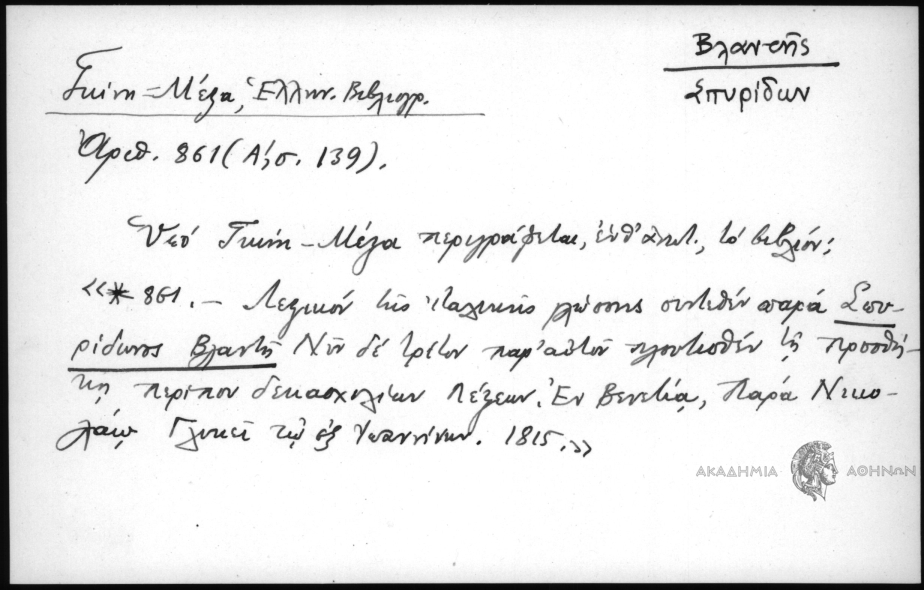 Βλαντῆς
Σπυρίδων
Γκίνη = Μέξα, Ἑλλην. Βιβλιογρ.
Ἀριθ. 861 (Α', σ. 139).
Ὑπό Γκίνη – Μέξα περιγράφεται, ἐνθ' ἀνωτ., τό βιβλίον;
«* 861. – Λεξικόν τῆς ἰταλικῆς γλώσσης συντεθέν παρά Σπυ-
ρίδωνος Βλαντῆ Νῦν δέ τρίτον παρ' αὐτοῦ πλουτισθέν τῇ προσθή-
κῃ περίπου δεκασχιλίων λέξεων. Ἐν Βενετίᾳ, Παρά Νικο-
λάῳ Γλυκεῖ τῷ ἐξ Ἰωαννίνων. 1815.»
ΑΚΑΔΗΜΙΑ ΑΘΗΝΩΝ